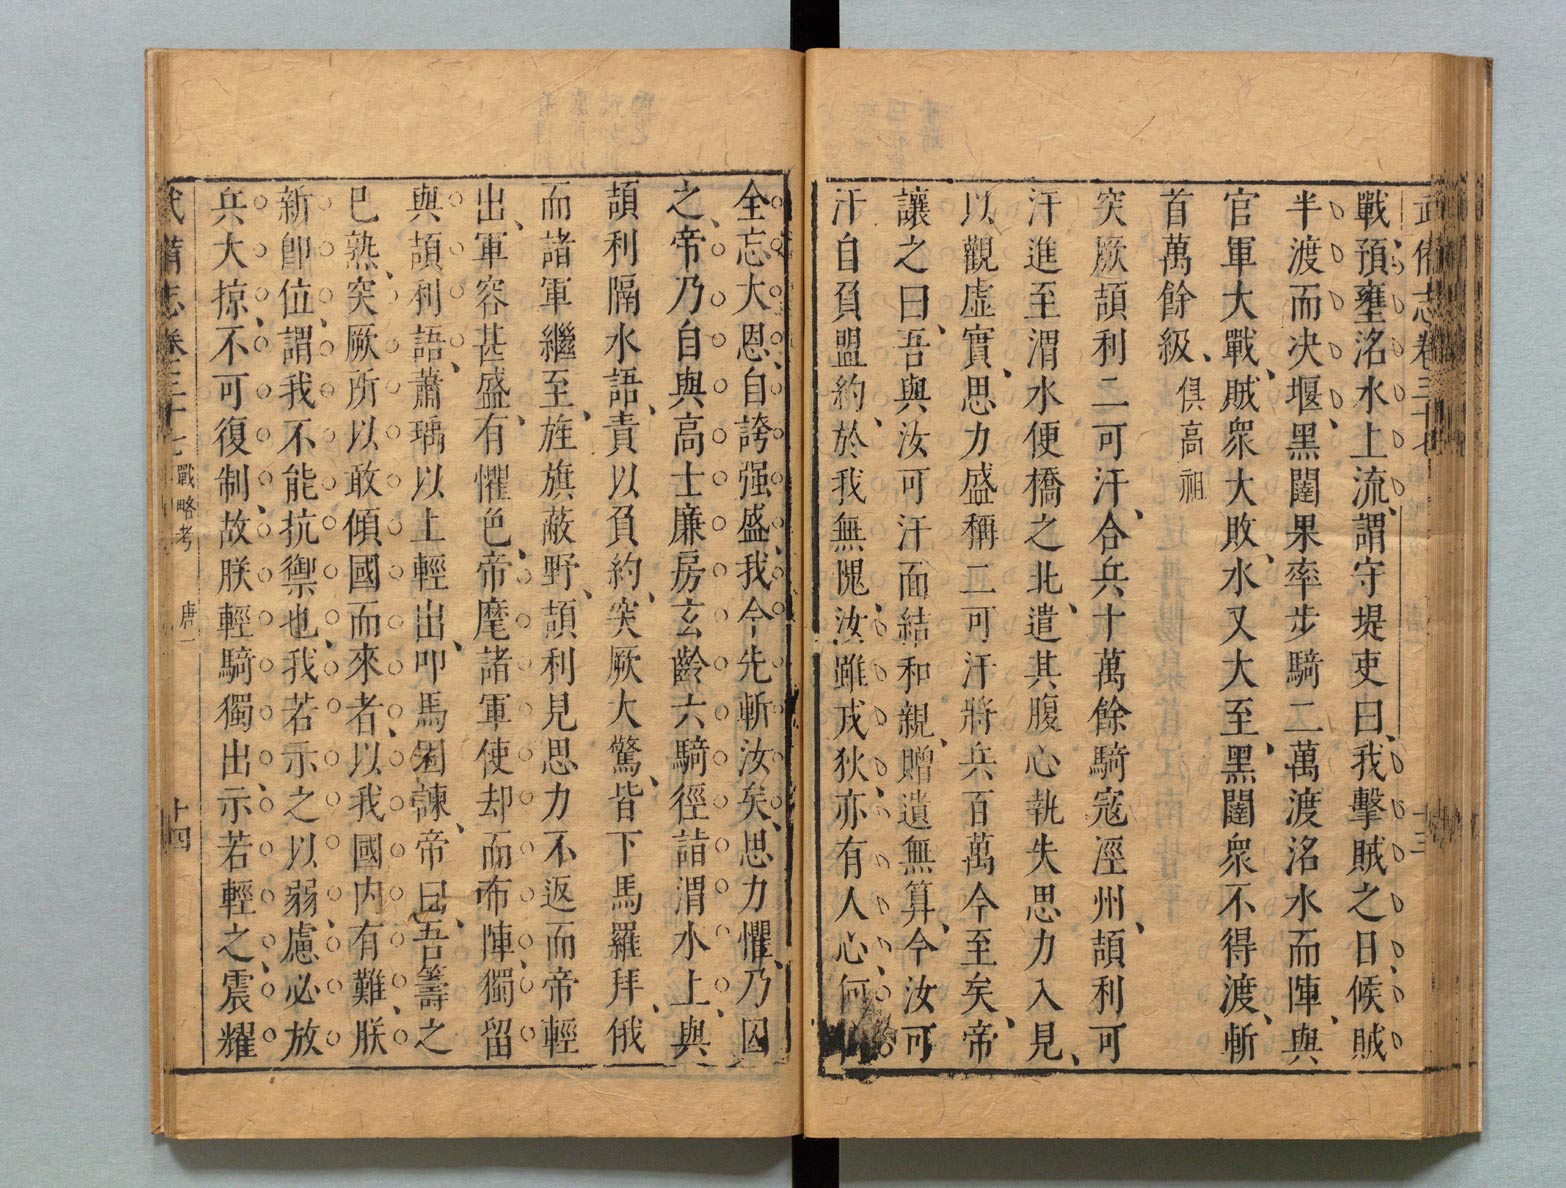 武備志卷三十七
十三
戰預壅洛水上流謂守堤吏曰我擊賊之日候賊
半渡而决堰黑闥果率步騎二萬渡洺水而陣與
官軍大戰賊衆大敗水又大至黑闥衆不得渡斬
首萬餘級俱高祖
突厥頡利二可汗合兵十萬餘騎寇涇州頡利可
汗進至渭水便橋之北遣其腹心執失思力入見
以觀虛實思力盛稱二可汗將兵百萬今至矣帝
讓之曰吾與汝可汗面結和親贈遺無算今汝可
汗自負盟約於我無愧汝雖戎狄亦有人心何
全忘大恩自誇强盛我今先斬汝矣思力懼乃囚
之帝乃自與高士廉房玄齡六騎徑詣渭水上與
頡利隔水語責以負約突厥大驚皆下馬羅拜俄
而諸軍繼至旌旗蔽野頡利見思力不返而帝輕
出軍容甚盛有懼色帝麾諸軍使却而布陣獨留
與頡利語蕭瑀以上輕出叩馬固諫帝曰吾籌之
已熟突厥所以敢傾國而來者以我國內有難朕
新卽位謂我不能抗禦也我若示之以弱慮必放
兵大掠不可復制故朕輕騎獨出示若輕之震耀
武備志卷三十七 戰略考 唐一 十四